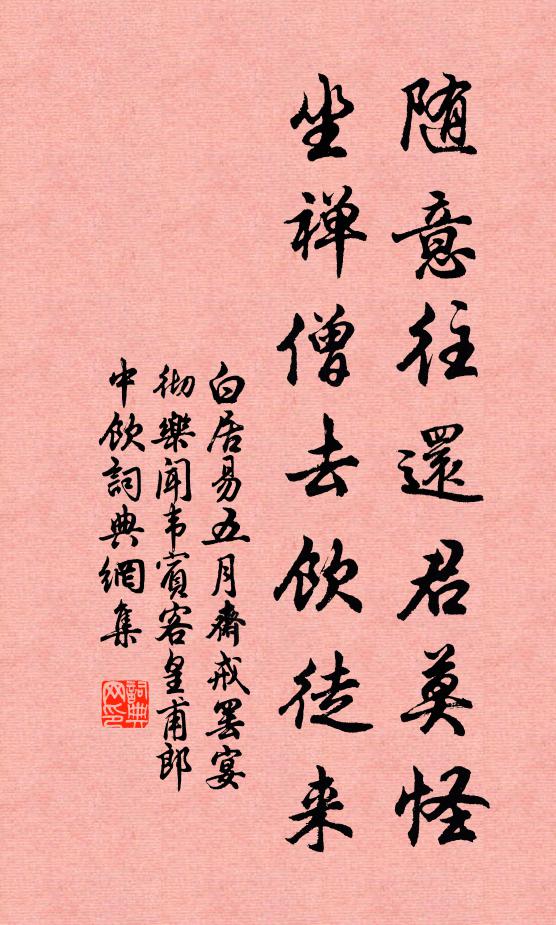 随意往還君莫怪
坐禅僧去饮徒来
白居易五月齋戒罢宴
彻樂闻韦賓客皇甫郎
中饮詞典網集
詞典网印